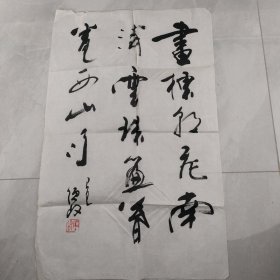 畫棟朝飛南
浦雲珠簾暮
卷西山雨